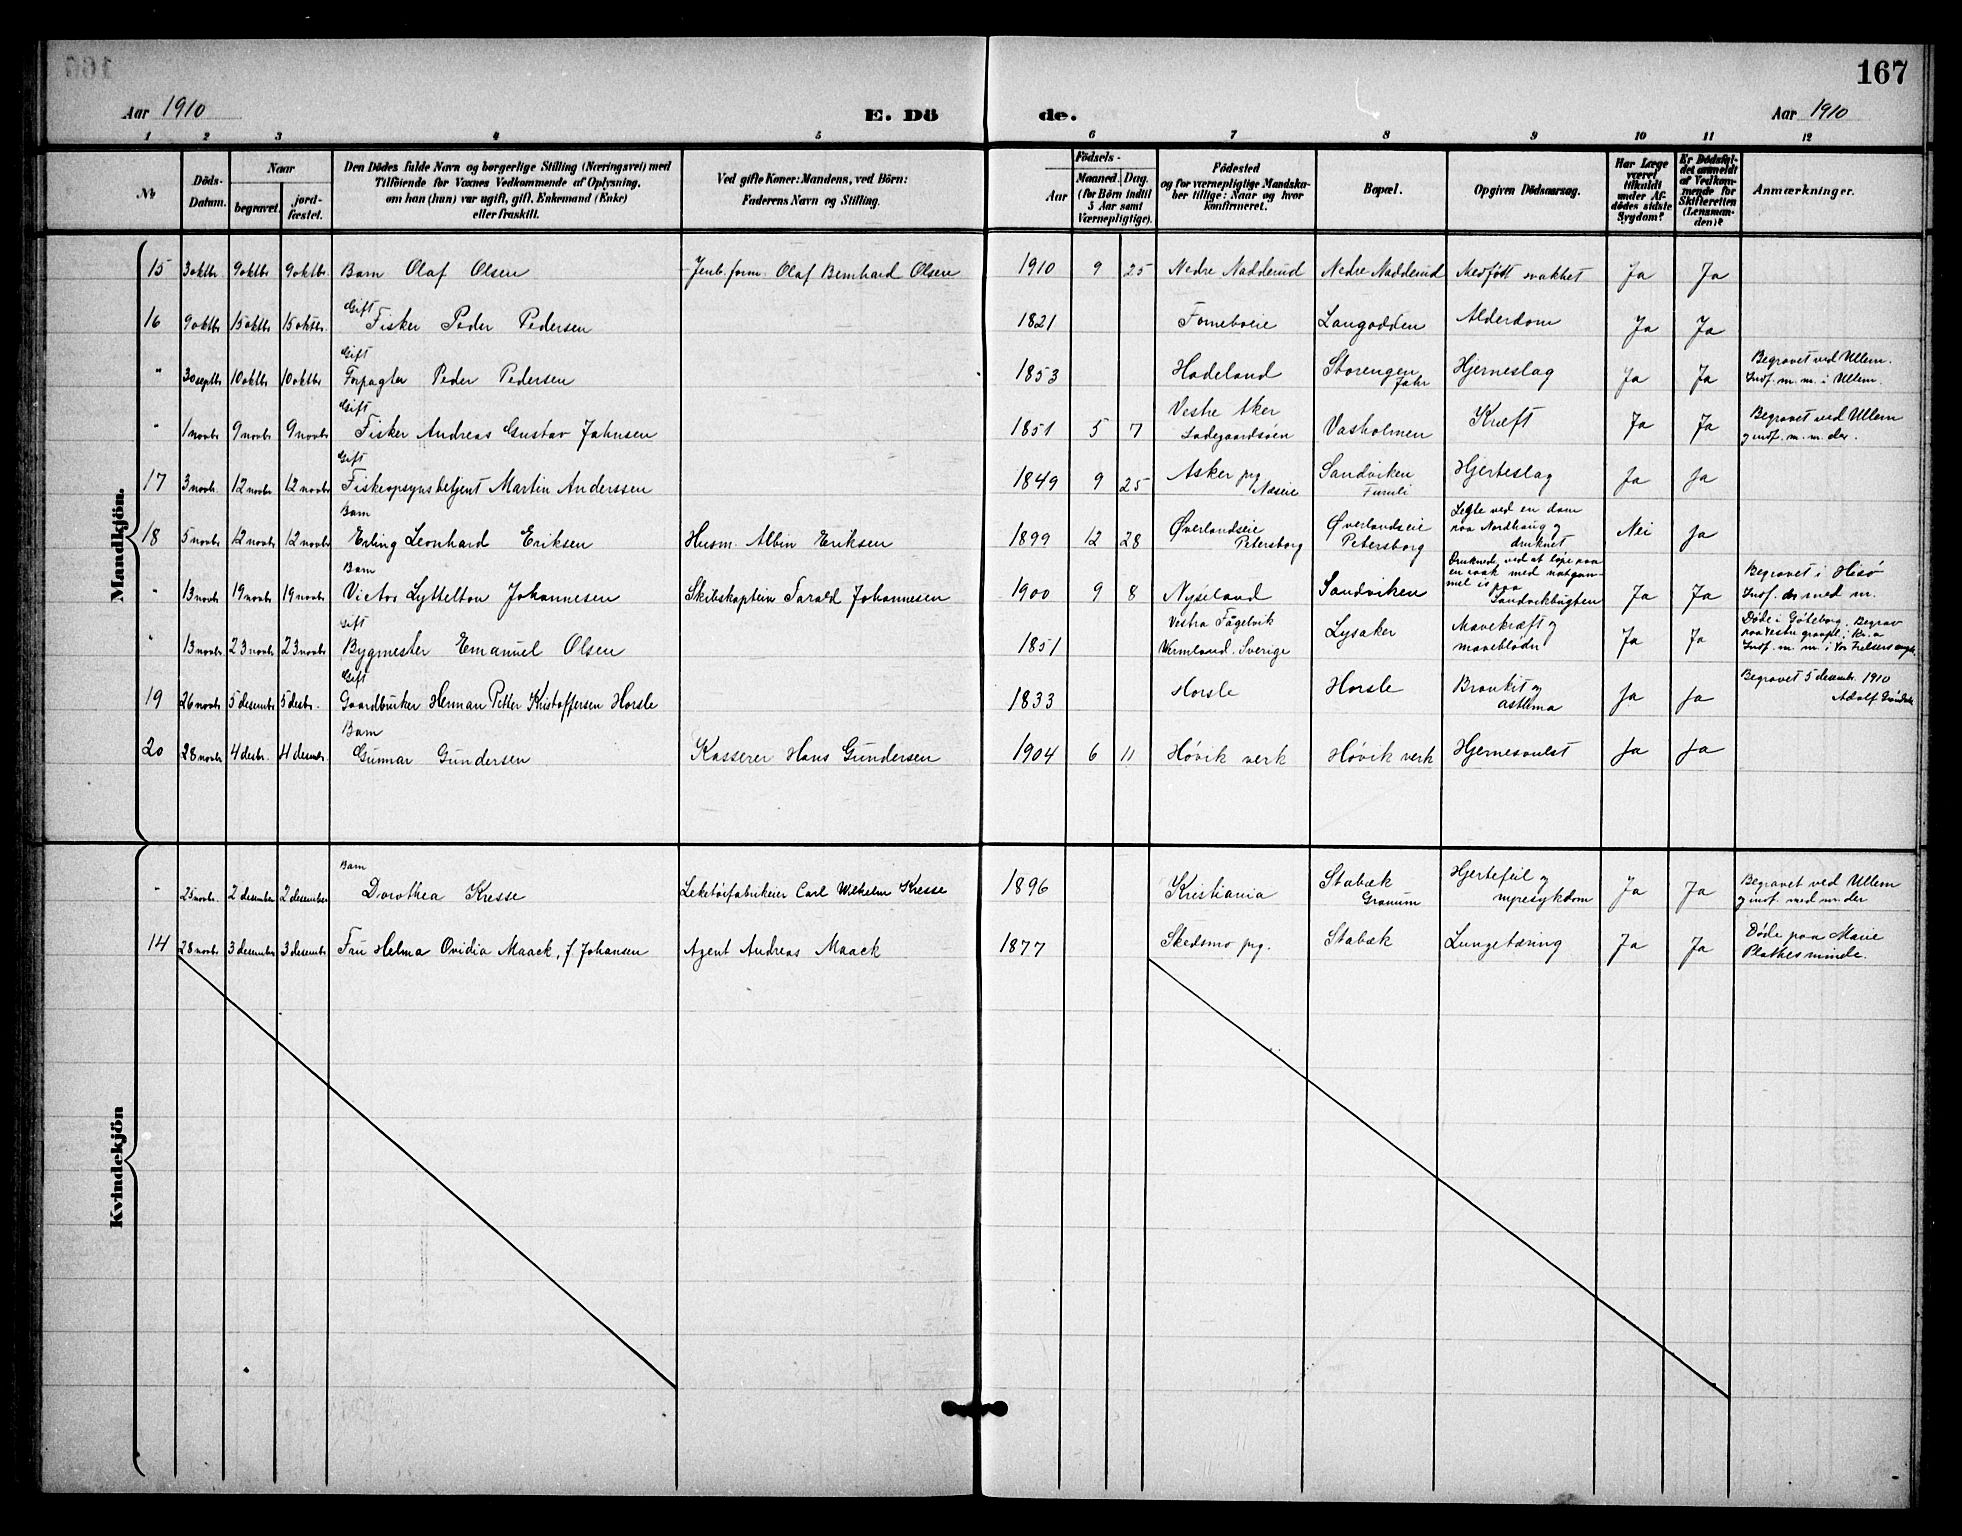 167
Aar 1910
E. Dö
de.
Aar 1910
1 2 3 4 5 6 7 8 9 10 11 12
№
Döds-
Datum.
Naar
begravet.
jord-
fæstet.
Den Dödes fulde Navn og borgerlige Stilling (Næringsvei) med
Tilföiende for Voxnes Vedkommende af Oplysning,
om han (hun) var ugift, gift, Enkemand (Enke)
eller fraskilt.
Ved gifte Koner: Mandens, ved Börn:
Faderens Navn og Stilling.
Födsels-
Aar
Maaned. Dag.
(for Börn indtil
5 Aar samt
Værnepligtige).
Födested
og for værnepligtige Mandska-
ber tillige: Naar og hvor
konfirmeret.
Bopæl.
Opgiven Dödsaarsag.
Har Læge
været
tilkaldt
under Af-
dödes sidste
Sygdom?
Er Dödsfal-
det anmeldt
af Vedkom-
mende for
Skifteretten
(Lensman-
den)?
Anmærkninger.
Mandkjön.
15 3 oktbr 9 oktbr 9 oktbr. Barn Olaf Olsen Jenb. form. Olaf Bernhard Olsen 1910 9 25 Nedre Nadderud Nedre Nadderud Medfött svakhet Ja Ja
Gift
16 9 oktbr 15 oktbr 15 oktbr. Fisker Peder Pedersen 1821 Forneboeie Langodden Alderdom Ja Ja
Gift
" 30 septbr 10 oktbr 10 oktbr Forpagter Peder Pedersen 1853 Hadeland Storengen Jahr Hjerneslag Ja Ja Begravet ved Ullern.
Indf. m. m. i Ullern.
Gift
" 1 novbr 9 novbr 9 novbr Fisker Andreas Gustav Jahnsen 1851 5 7 Vestre Aker
Ladegaardsöen Vasholmen Kræft Ja Ja Begravet ved Ullern
og indf. m. m. der.
Gift
17 3 novb. 12 novbr 12 novbr Fiskeopsynsbetjent Martin Anderssen 1849 9 25 Asker prg
Næseie Sandviken
Furuli Hjerteslag Ja Ja
Barn
18 5 novbr 12 novbr 12 novbr Erling Leonhard Eriksen Husm. Albin Eriksen 1899 12 28 Øverlandseie
Petersborg Øverlandseie
Petersborg Legte ved en dam
paa Nordhaug og
druknet Nei Ja
Barn
" 13 novbr 19 novbr 19 novbr Victor Lyttelton Johannesen Skibskaptein Tarald Johannesen 1900 9 8 Nyseland Sandviken Druknede, ved at löpe paa
en raak med natgam-
mel is paa
Sandvikbugten Ja Ja Begravet i Hisö
Indf. der med nr.
Gift
" 13 novbr 23 novbr 23 novbr Bygmester Emanuel Olsen 1851 Vestra Fågelvik
Vermland. Sverige Lysaker Mavekræft og
maveblødn Ja Ja Døde i Göteborg. Begrav
paa Vestre gravpl. i Kr.a
Indf. m. m. i Vor Frelsers
Gift
19 26 novbr 5 desembr 5 desbr. Gaardbruker Herman Petter Kristoffersen Horsle 1833 Horsle Horsle Bronkit og
asthma Ja Ja Begravet 5 desembr. 1910
Adolf
Barn
20 28 novbr 4 desbr. 4 desmbr. Gunnar Gundersen Kasserer Hans Gundersen 1904 6 11 Høvik verk Høvik verk Hjernesvulst Ja Ja
Kvindekjön
Barn
" 25 novbr. 2 desember 2 desember Dorothea Kresse Leketöifabrikeier Carl Wilhelm Kresse 1896 Kristiania Stabæk
Granum Hjertefeil og
nyresykdom Ja Ja Begravet ved Ullern
og indf. med nr. der
14 28 novbr 3 desember 3 desember Fru Helma Ovidia Maack, f. Johansen Agent Andreas Maack 1877 Skedsmo prg. Stabæk Lungetæring Ja Ja Døde paa Marie
Plathes minde.